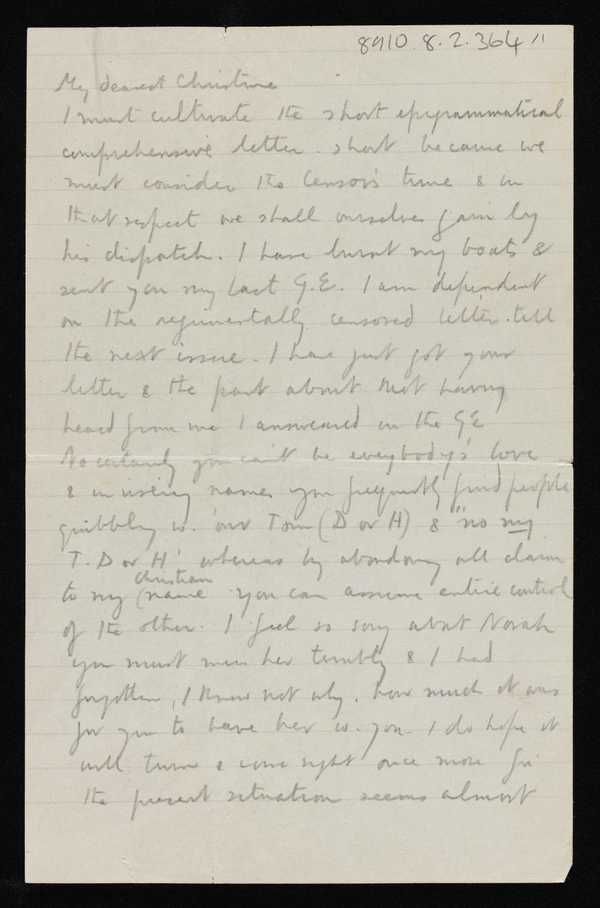 8910 8.2.364 11
My dearest Christine
I must cultivate the short epigrammatical
comprehensive letter. short because we
must consider the Censor's time & in
that respect we shall ourselves gain by
his dispatch. I have burnt my boats &
sent you my last G.E. I am dependent
on the regimentally censored letter till
the next issue. I have just got your
letter & the part about not having
heard from me I answeared in the GE
No certainly you can't be everybody's love
& in using names you frequently find people
quibbling w. 'our Tom (D or H) & "no my
T. D or H' whereas by abandoning all claim
to my (Christian name you can assume entire control
of the other. I feel so sorry about Norah
you must miss her terribly & I had
forgotten, I know not why, how much it was
for you to have her w. you. I do hope it
will turn & come right once more for
the present situation seems almost